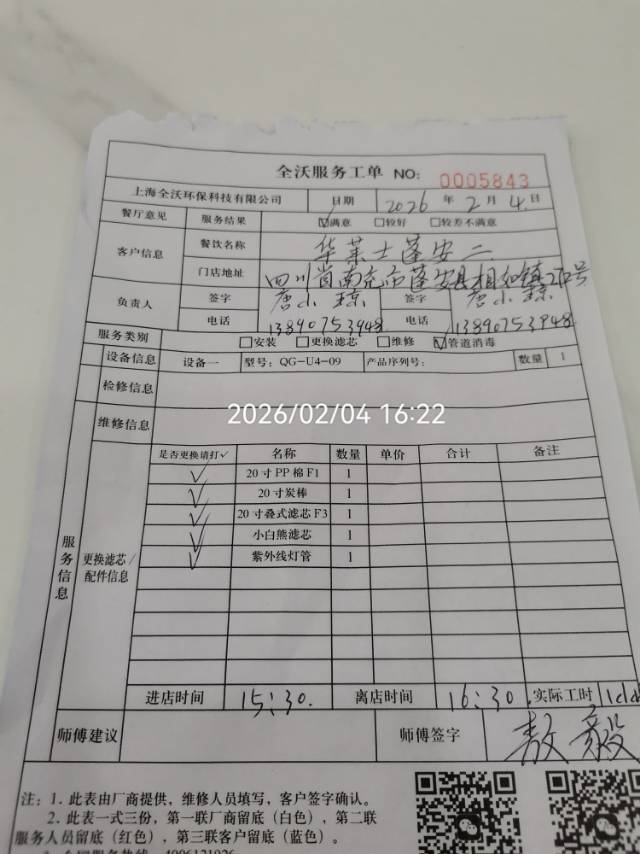 全沃服务工单 NO: 0005843
上海全沃环保科技有限公司 日期 2026 年 2 月 4 日
餐厅意见 服务结果 ☑满意 □较好 □较差不满意
客户信息 餐饮名称 华莱士蓬安二
门店地址 四川省南充市蓬安县相如镇 号
负责人 签字 唐小琼 签字 唐小琼
电话 13890753948 电话 13890753948
服务类别 □安装 □更换滤芯 □维修 ☑管道消毒
设备信息 设备一 型号: QG-U4-09 产品序列号: 数量 1
检修信息
2026/02/04 16:22
维修信息
服务信息
更换滤芯/配件信息
是否更换请打✓ 名称 数量 单价 合计 备注
✓ 20寸PP棉F1 1
✓ 20寸炭棒 1
✓ 20寸叠式滤芯F3 1
✓ 小白熊滤芯 1
✓ 紫外线灯管 1
进店时间 15:30. 离店时间 16:30. 实际工时
师傅建议 师傅签字 敖毅
注: 1. 此表由厂商提供，维修人员填写，客户签字确认。
2. 此表一式三份，第一联厂商留底（白色），第二联
服务人员留底（红色），第三联客户留底（蓝色）。